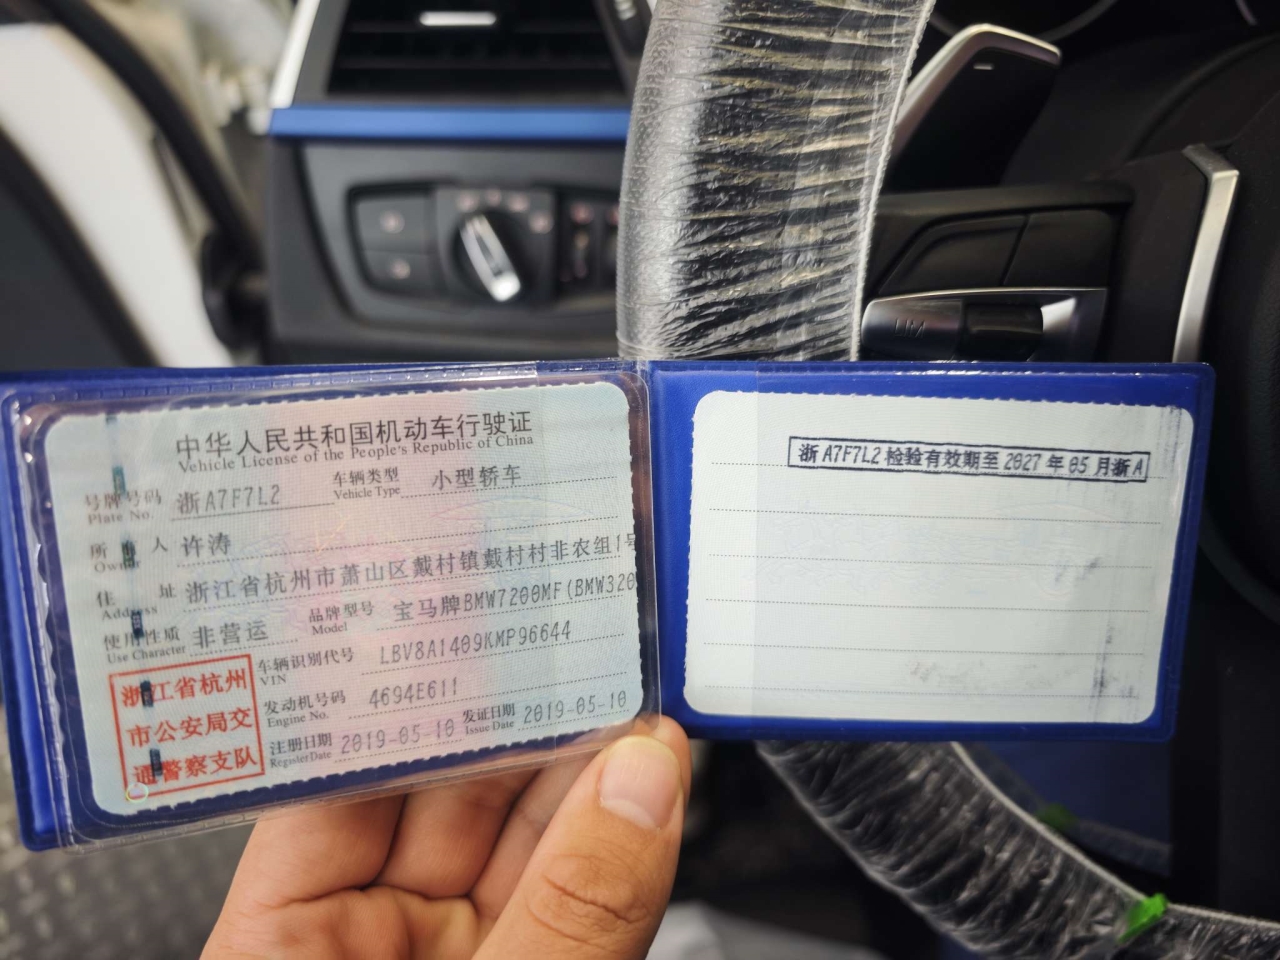 中华人民共和国机动车行驶证
Vehicle License of the People's Republic of China
号牌号码 浙A7F7L2 车辆类型 小型轿车
Plate No. Vehicle Type
所 人 许涛
住 址 浙江省杭州市萧山区戴村镇戴村村非农组1号
Address
使用性质 非营运 品牌型号 宝马牌BMW7200MF(BMW320
Use Character Model
车辆识别代号 LBV8A1409KMP96644
VIN
发动机号码 4694E611
Engine No.
注册日期 2019-05-10 发证日期 2019-05-10
Register Date Issue Date
浙江省杭州
市公安局交
通警察支队
浙A7F7L2检验有效期至2027年05月浙A
LIM